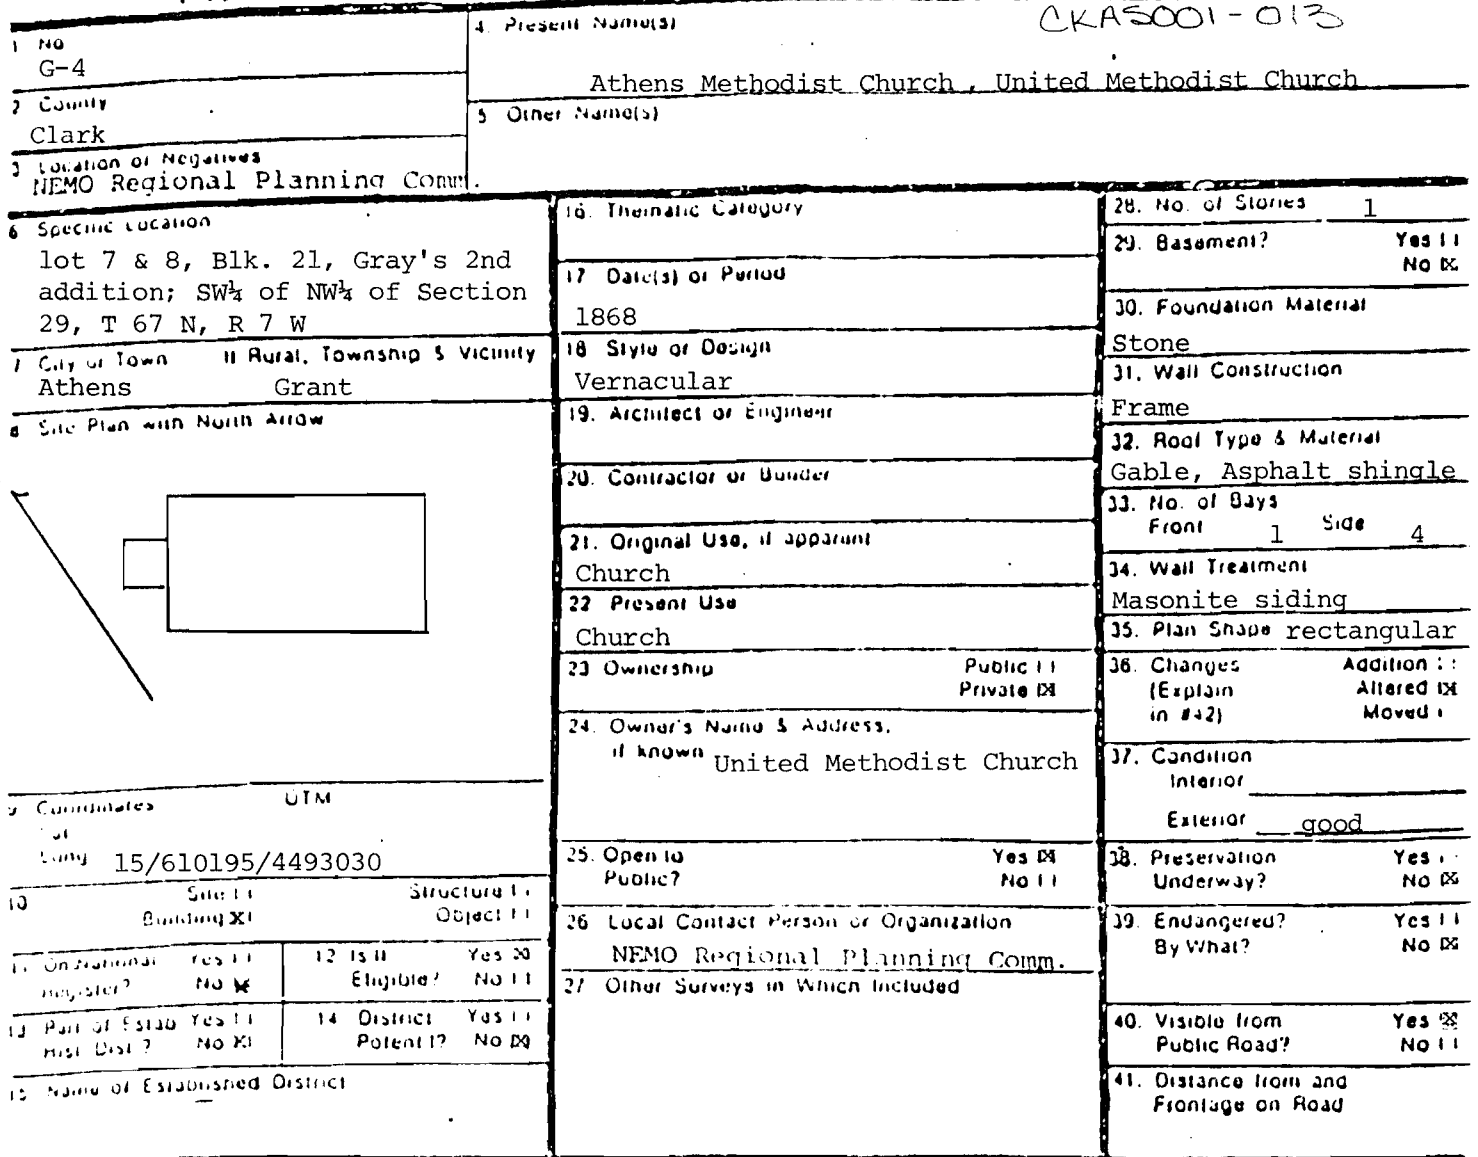 CKAS001-013
1 No
G-4
4. Present Name(s)
Athens Methodist Church, United Methodist Church
2 County
Clark
5 Other Name(s)
3 Location of Negatives
NEMO Regional Planning Comm.
6 Specific Location
lot 7 & 8, Blk. 21, Gray's 2nd
addition; SW¼ of NW¼ of Section
29, T 67 N, R 7 W
7 City or Town If Rural, Township & Vicinity
Athens Grant
8 Site Plan with North Arrow
9 Coordinates UTM
Lat
Long 15/610195/4493030
10 Site [ ] Structure [ ]
Building [X] Object [ ]
11 On National Yes [ ]
Register? No [X]
12 Is It Yes [X]
Eligible? No [ ]
13 Part of Estab Yes [ ]
Hist. Dist.? No [X]
14 District Yes [ ]
Potent'l? No [X]
15 Name of Established District
16. Thematic Category
17 Date(s) or Period
1868
18 Style or Design
Vernacular
19. Architect or Engineer
20. Contractor or Builder
21. Original Use, if apparent
Church
22 Present Use
Church
23 Ownership Public [ ]
Private [X]
24. Owner's Name & Address,
if known United Methodist Church
25. Open to Yes [X]
Public? No [ ]
26 Local Contact Person or Organization
NEMO Regional Planning Comm.
27 Other Surveys in Which Included
28. No. of Stories 1
29. Basement? Yes [ ]
No [X]
30. Foundation Material
Stone
31. Wall Construction
Frame
32. Roof Type & Material
Gable, Asphalt shingle
33. No. of Bays
Front 1 Side 4
34. Wall Treatment
Masonite siding
35. Plan Shape rectangular
36. Changes Addition [ ]
(Explain Altered [X]
in #42) Moved [ ]
37. Condition
Interior
Exterior good
38. Preservation Yes [ ]
Underway? No [X]
39. Endangered? Yes [ ]
By What? No [X]
40. Visible from Yes [X]
Public Road? No [ ]
41. Distance from and
Frontage on Road